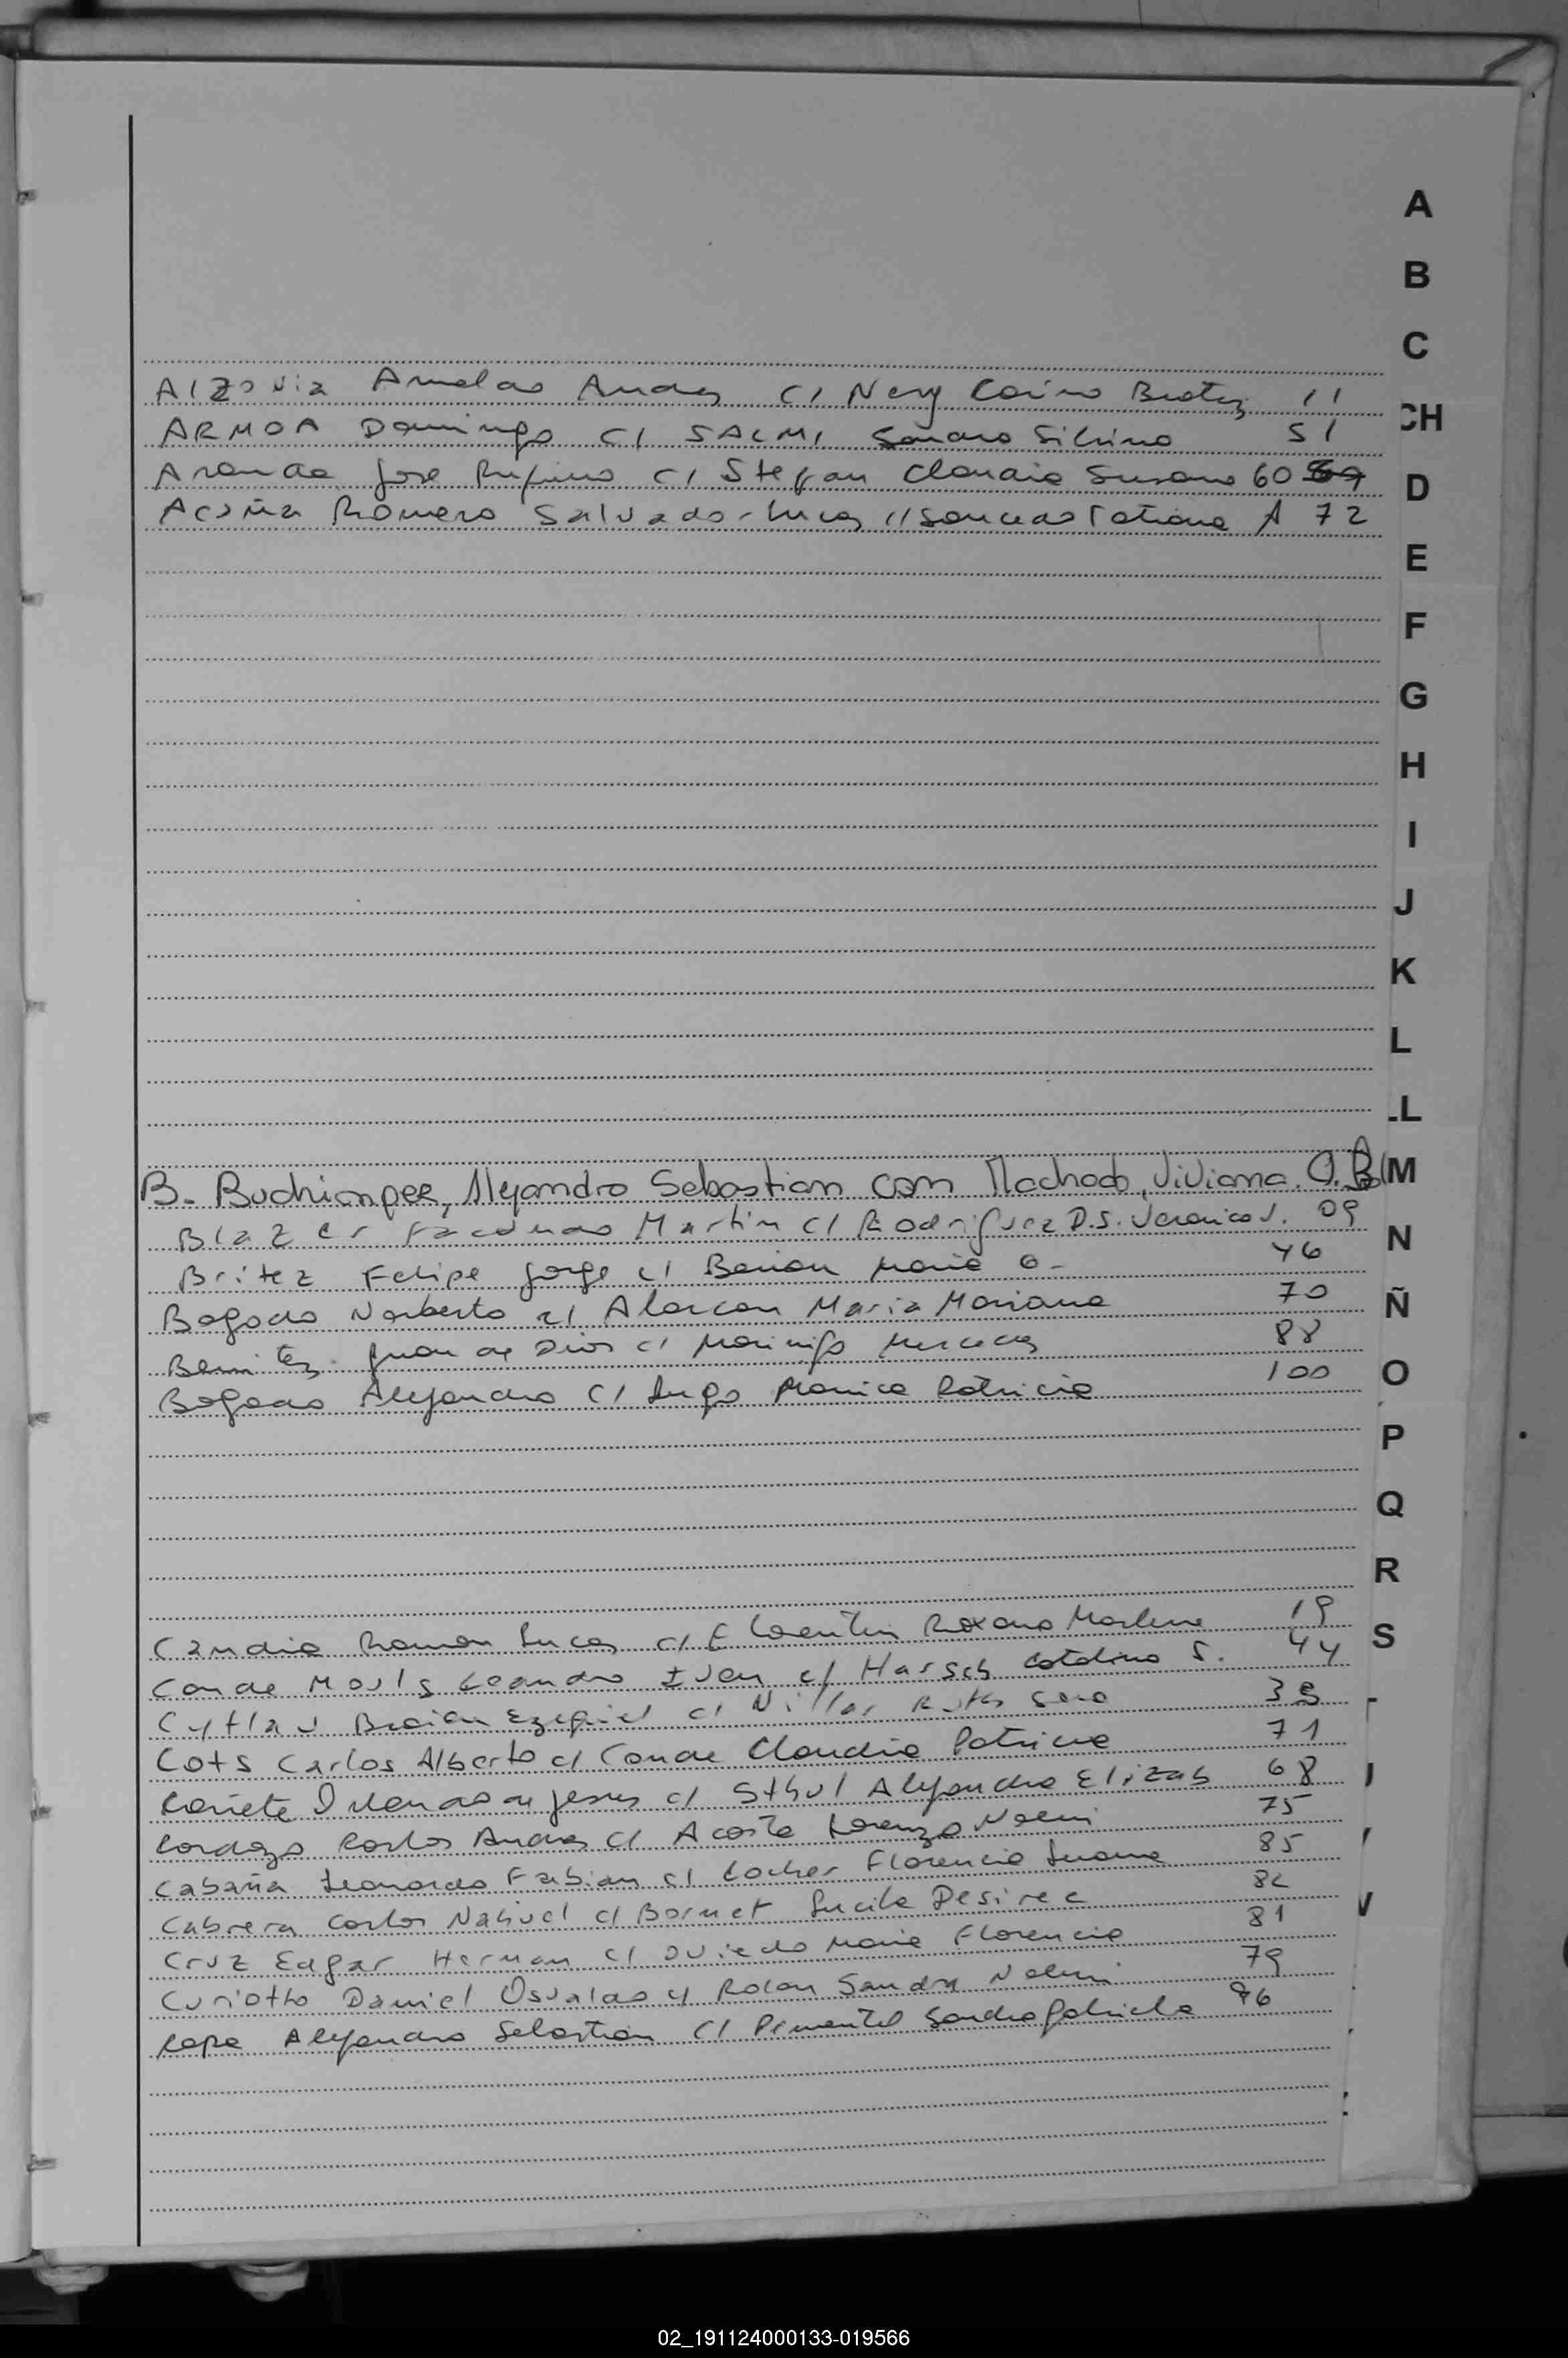 A
B
C
CH
D
E
F
G
H
I
J
K
L
LL
M
N
Ñ
O
P
Q
R
S
Andres c/ Nery 11
ARMOA Domingo c/ SALMI Sandro Silvino 51
Aranda Jose Rufino c/ Stefan Claudia Susana 60
Acuña Romero Salvador Lucas c/ Saucedo Tatiana A 72
B. Alejandro Sebastian con Machado, Viviana.
Martin c/ Rodriguez D.S. Veronica V. 09
Britez Felipe Jorge c/ Maria 46
Bogado Norberto c/ Alarcon Maria Mariana 70
Benitez Juan de Dios c/ Marinigo Mercedes 88
Bogado Alejandro c/ Lugo Monica Patricia 100
Candia Ramon Lucas c/ Florentin Roxana Marlene 19
Conde Leandro Ivan c/ Catalina S. 44
Braian Ezequiel c/ Ruth Sara
Cots Carlos Alberto c/ Conde Claudia Patricia 71
Cañete de Jesus c/ Sthul Alejandra Elizab 68
Cardozo Carlos Andres c/ Acosta Lorenza Noemi 75
Cabaña Leonardo Fabian c/ Locher Florencia Luana 85
Cabrera Carlos Nahuel c/ Bornet Lucila Desiree 82
Cruz Edgar Hernan c/ Oviedo Maria Florencia 81
Curiotto Daniel Osvaldo c/ Rolon Sandra Noemi 79
Alejandro Sebastian c/ Pimentel Sandra Gabriela 96
02_191124000133-019566